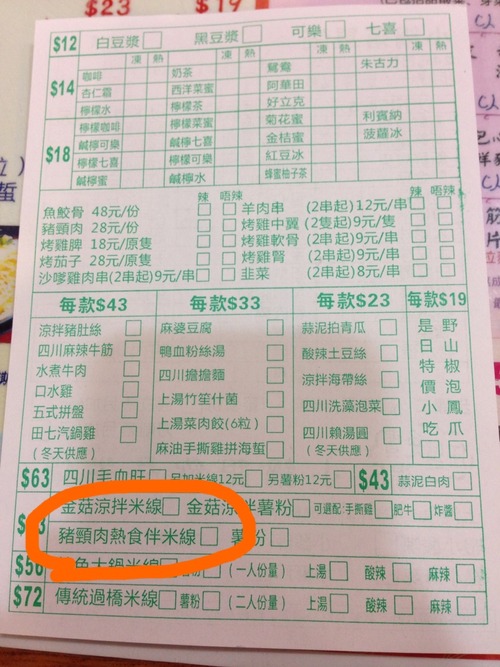 $23 $19
$12 白豆漿 黑豆漿 可樂 七喜
凍 熱 凍 熱 凍 熱 凍 熱
$14 咖啡 奶茶 鴛鴦 朱古力
杏仁霜 西洋菜蜜 阿華田
檸檬水 檸檬茶 好立克
$18 檸檬咖啡 檸檬菜蜜 菊花蜜 利賓納
鹹檸可樂 鹹檸七喜 金桔蜜 菠蘿冰
檸檬七喜 檸檬可樂 紅豆冰
鹹檸蜜 鹹檸水 蜂蜜柚子茶
辣 唔辣 辣 唔辣
魚鮫骨 48元/份 羊肉串 (2串起)12元/串
豬頸肉 28元/份 烤雞中翼 (2隻起)9元/隻
烤雞脾 18元/原隻 烤雞軟骨 (2串起)9元/串
烤茄子 28元/原隻 烤雞腎 (2串起)9元/串
沙嗲雞肉串(2串起)9元/串 韭菜 (2串起)8元/串
每款$43 每款$33 每款$23 每款$19
涼拌豬肚絲 麻婆豆腐 蒜泥拍青瓜 是日特價小吃 野山椒泡鳳爪
四川麻辣牛筋 鴨血粉絲湯 酸辣土豆絲
水煮牛肉 四川擔擔麵 涼拌海帶絲
口水雞 上湯竹笙什菌 四川洗藻泡菜
五式拼盤 上湯菜肉餃(6粒) 四川賴湯圓
田七汽鍋雞 麻油手撕雞拼海蜇 (冬天供應)
(冬天供應)
$63 四川毛血旺 另加米線12元 另薯粉12元 $43 蒜泥白肉
金菇涼拌米線 金菇涼拌薯粉 可選配:手撕雞 肥牛 炸醬
豬頸肉熱食伴米線 薯粉
$56 大鍋米線 薯粉 (一人份量) 上湯 酸辣 麻辣
$72 傳統過橋米線 薯粉 (二人份量) 上湯 酸辣 麻辣